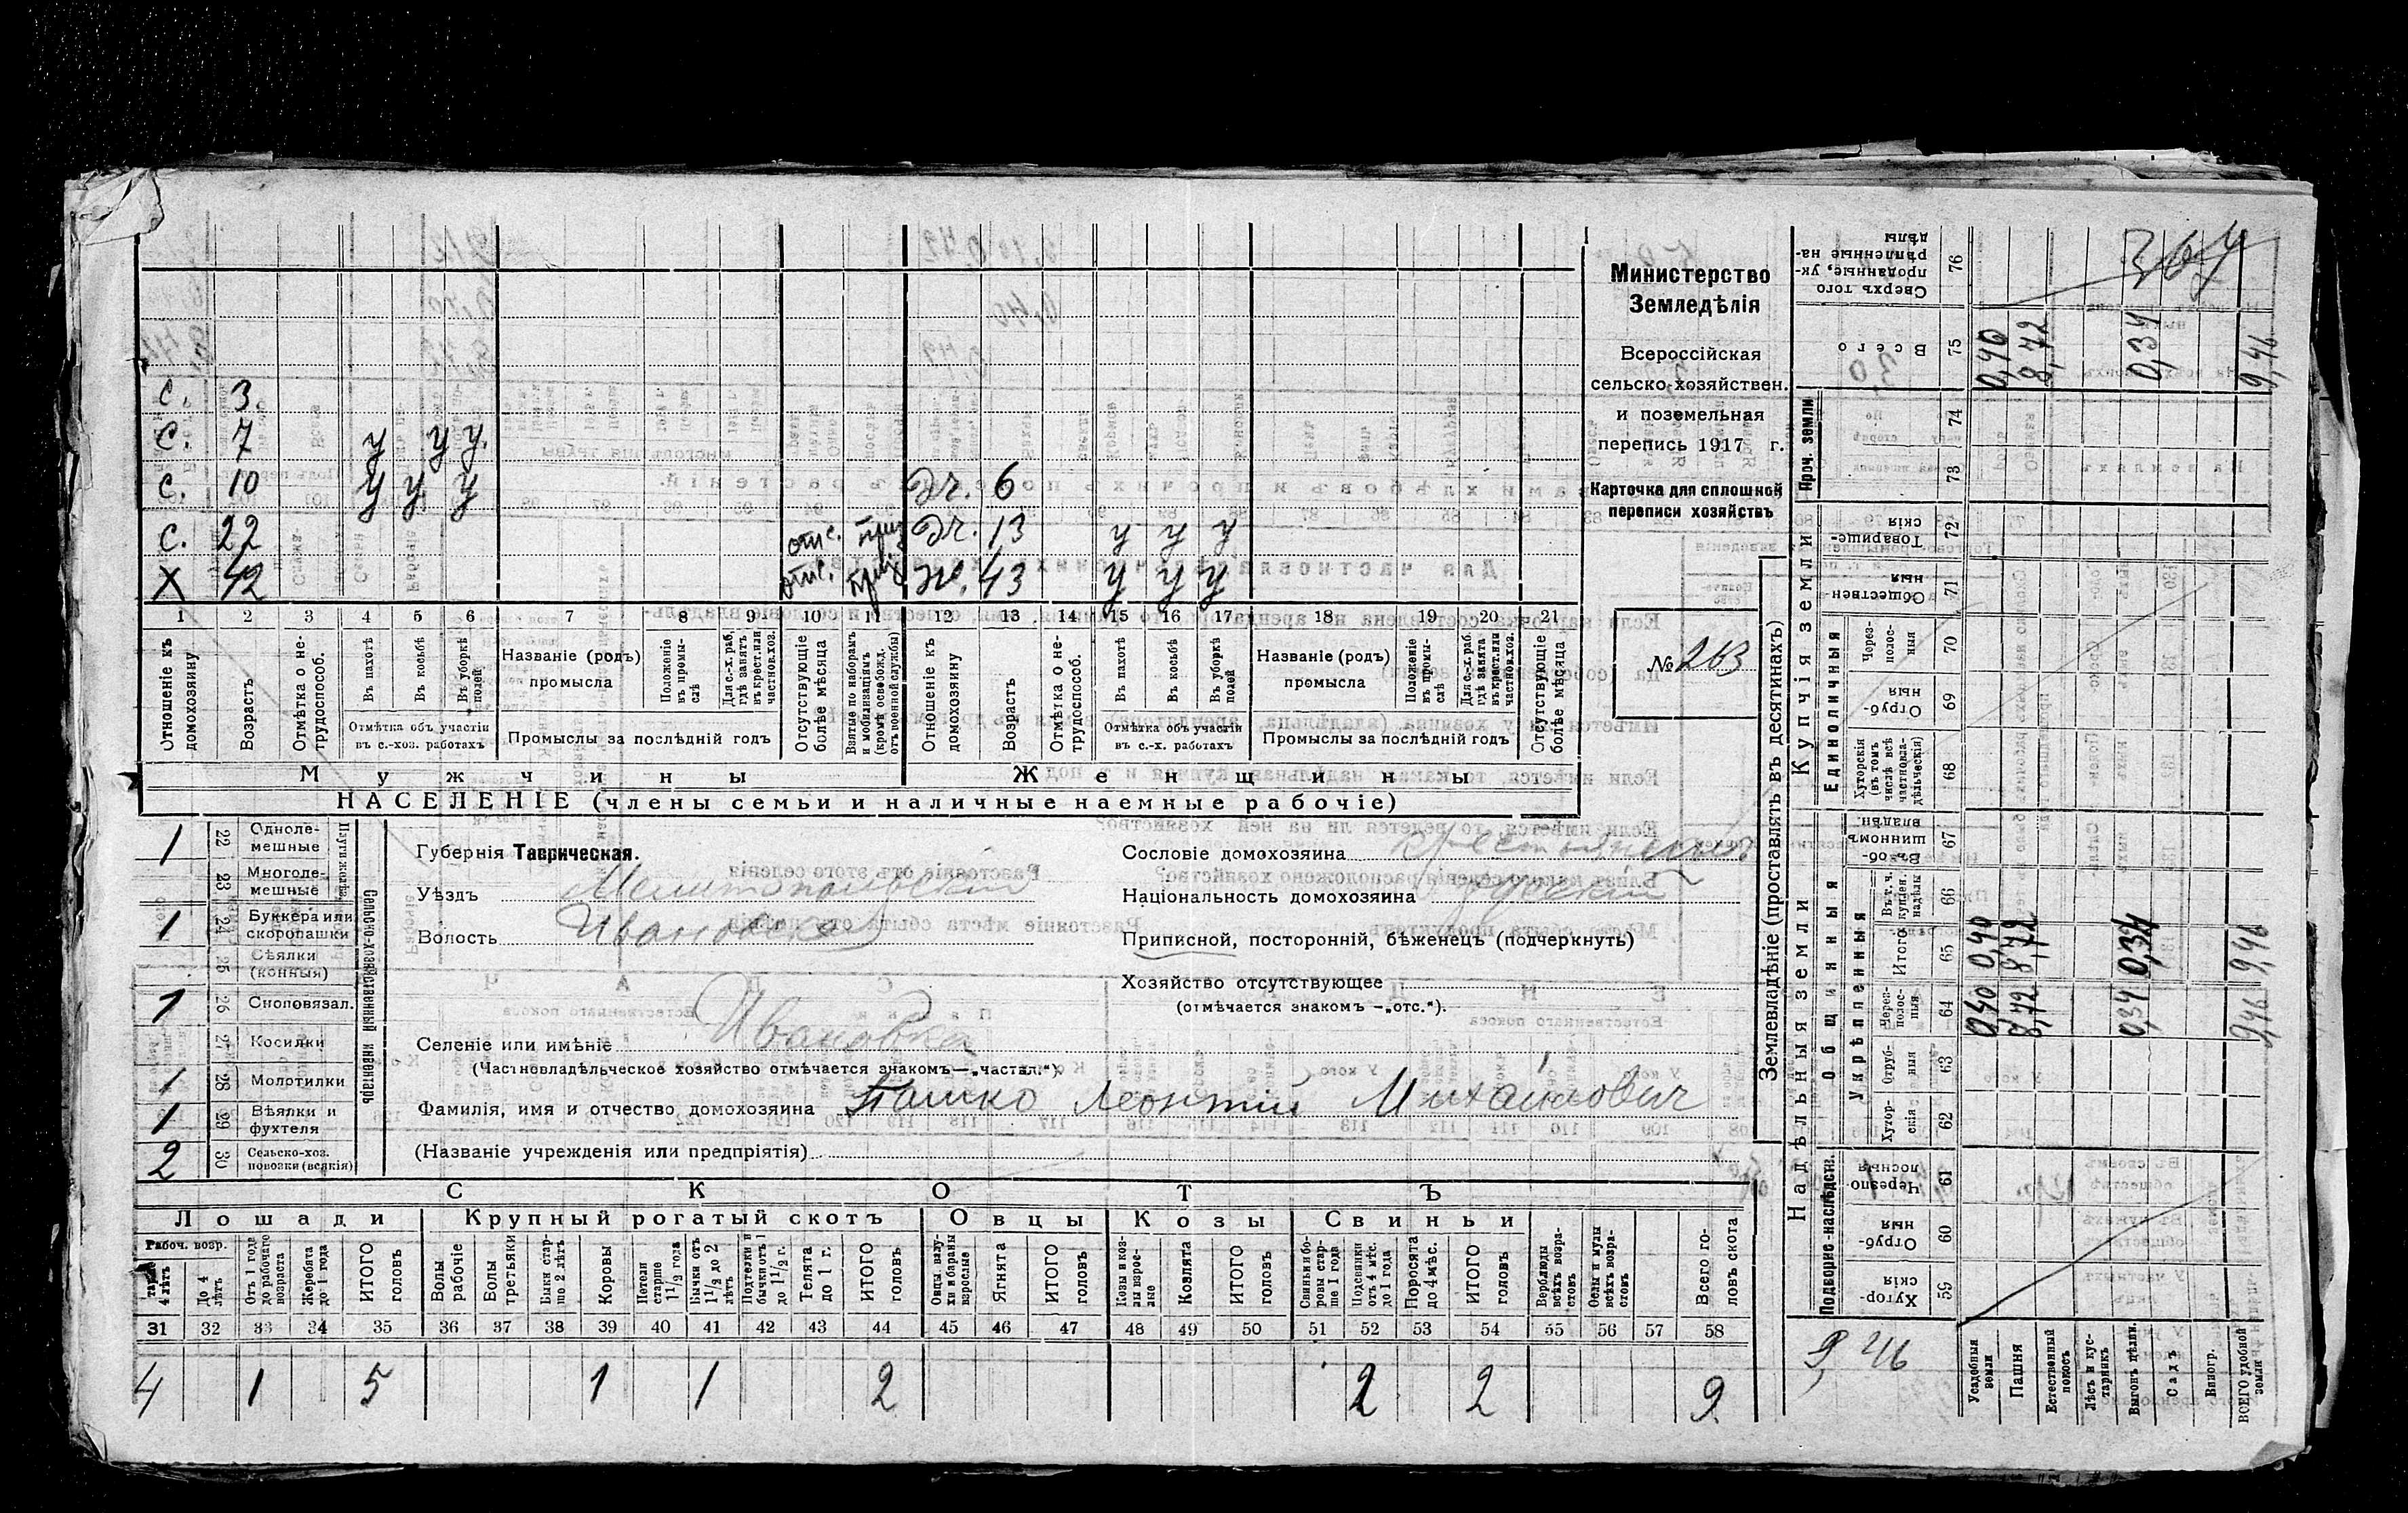 С. 3
С. 7 у у у.
С. 10 у у у Дч. 6
С. 22 отс. приз Дч. 13 у у у
Х 42 отс. приз Ж. 43 у у у
1 2 3 4 5 6 7 8 9 10 11 12 13 14 15 16 17 18 19 20 21
Отношеніе къ домохозяину
Возрастъ
Отмѣтка о не-трудоспособ.
Въ пахотѣ
Въ косьбѣ
Въ уборкѣ полей
Отмѣтка объ участіи въ с.-хоз. работахъ
Названіе (родъ) промысла
Положеніе въ промы-слѣ
Для с.-х. раб. гдѣ занятъ въ крест. или частнов. хоз.
Промыслы за послѣдній годъ
Отсутствующіе болѣе мѣсяца
Взятые по наборамъ и мобилизаціямъ (кромѣ освобожд. отъ военной службы)
Отношеніе къ домохозяину
Возрастъ
Отмѣтка о не-трудоспособ.
Въ пахотѣ
Въ косьбѣ
Въ уборкѣ полей
Отмѣтка объ участіи въ с.-х. работахъ
Названіе (родъ) промысла
Положеніе въ промы-слѣ
Для с.-х. раб. гдѣ занята въ крест. или частнов. хоз.
Промыслы за послѣдній годъ
Отсутствующіе болѣе мѣсяца
Мужчины Женщины
НАСЕЛЕНІЕ (члены семьи и наличные наемные рабочіе)
Министерство
Земледѣлія
Всероссійская
сельско-хозяйствен.
и поземельная
перепись 1917 г.
Карточка для сплошной
переписи хозяйствъ
№ 263
1 22 Однолемешные
23 Многолемешные
1 24 Буккера или скоропашки
25 Сѣялки (конныя)
1 26 Сноповязал.
27 Косилки
1 28 Молотилки
1 29 Вѣялки и фухтеля
2 30 Сельско-хоз. повозки (всякія)
Сельско-хозяйственный инвентарь
Губернія Таврическая.
Уѣздъ Мелитопольскій
Волость Ивановск
Сословіе домохозяина крестьянинъ
Національность домохозяина русскій
Приписной, посторонній, бѣженецъ (подчеркнуть)
Хозяйство отсутствующее
(отмѣчается знакомъ —„отс.“).
Селеніе или имѣніе Ивановка
(Частновладѣльческое хозяйство отмѣчается знакомъ—„частвл.“).
Фамилія, имя и отчество домохозяина Пашко Леонтій Михайлович
(Названіе учрежденія или предпріятія)
СКОТЪ
Лошади Крупный рогатый скотъ Овцы Козы Свиньи
Рабоч. возр.
4 лѣтъ
До 4 лѣтъ
Отъ 1 года до рабочаго возраста
Жеребята до 1 года
ИТОГО головъ
Волы рабочіе
Волы третьяки
Быки старше 2 лѣтъ
Коровы
Нетели старше 1 1/2 года
Бычки отъ 1 1/2 до 2 лѣтъ
Подтелки и бычки отъ 1 до 1 1/2 г.
Телята до 1 г.
ИТОГО головъ
Овцы, валухи и бараны взрослые
Ягнята
ИТОГО головъ
Козы и козлы взрослые
Козлята
ИТОГО головъ
Свиньи и боровы старше 1 года
Подсвинки отъ 4 мѣс. до 1 года
Поросята до 4 мѣс.
ИТОГО головъ
Верблюды всѣхъ возрастовъ
Ослы и мулы всѣхъ возрастовъ
Всего головъ скота
31 32 33 34 35 36 37 38 39 40 41 42 43 44 45 46 47 48 49 50 51 52 53 54 55 56 57 58
4 1 5 1 1 2 2 2 9.
Землевладѣніе (проставлять въ десятинахъ)
Надѣльныя земли Купчія земли Проч. земли
Подворно-наслѣдств. Общинныя Укрѣпленныя Единоличныя
Сверхъ того проданные, укрѣпленные надѣлы 76 367
Всего 75 0,40 8,72 0,34 9,46
74
73
Товарищескія 72
Общественныя 71
Черезполосныя 70
Отрубныя 69
Хуторскія (въ томъ числѣ всѣ частновладѣльческія) 68
Въ общинномъ владѣн. 67
Въ т. ч. купчен. надѣлы 66
Итого 65 0,40 8,72 0,34 9,46
Черезполосныя 64 0,40 8,72 0,34 9,46
Отрубныя 63
Хуторскія 62
Черезполосныя 61
Отрубныя 60
Хуторскія 59
9,46
Усадебныя земли
Пашня
Естественный покосъ
Лѣсъ и кустарникъ
Выгонъ дѣлян.
Садъ
Виногр.
ВСЕГО удобной земли